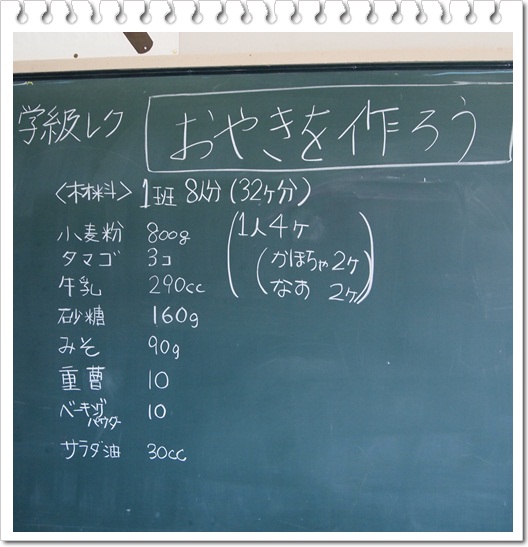 学級レク おやきを作ろう
〈材料〉 1班 8人分 (32ヶ分)
小麦粉 800g (1人4ヶ
タマゴ 3コ (かぼちゃ2ヶ
牛乳 290cc なす 2ヶ))
砂糖 160g
みそ 90g
重曹 10
ベーキングパウダー 10
サラダ油 30cc